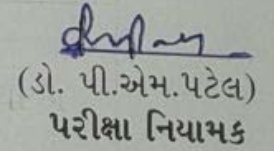 (ડો. પી.એમ.પટેલ)
પરીક્ષા નિયામક